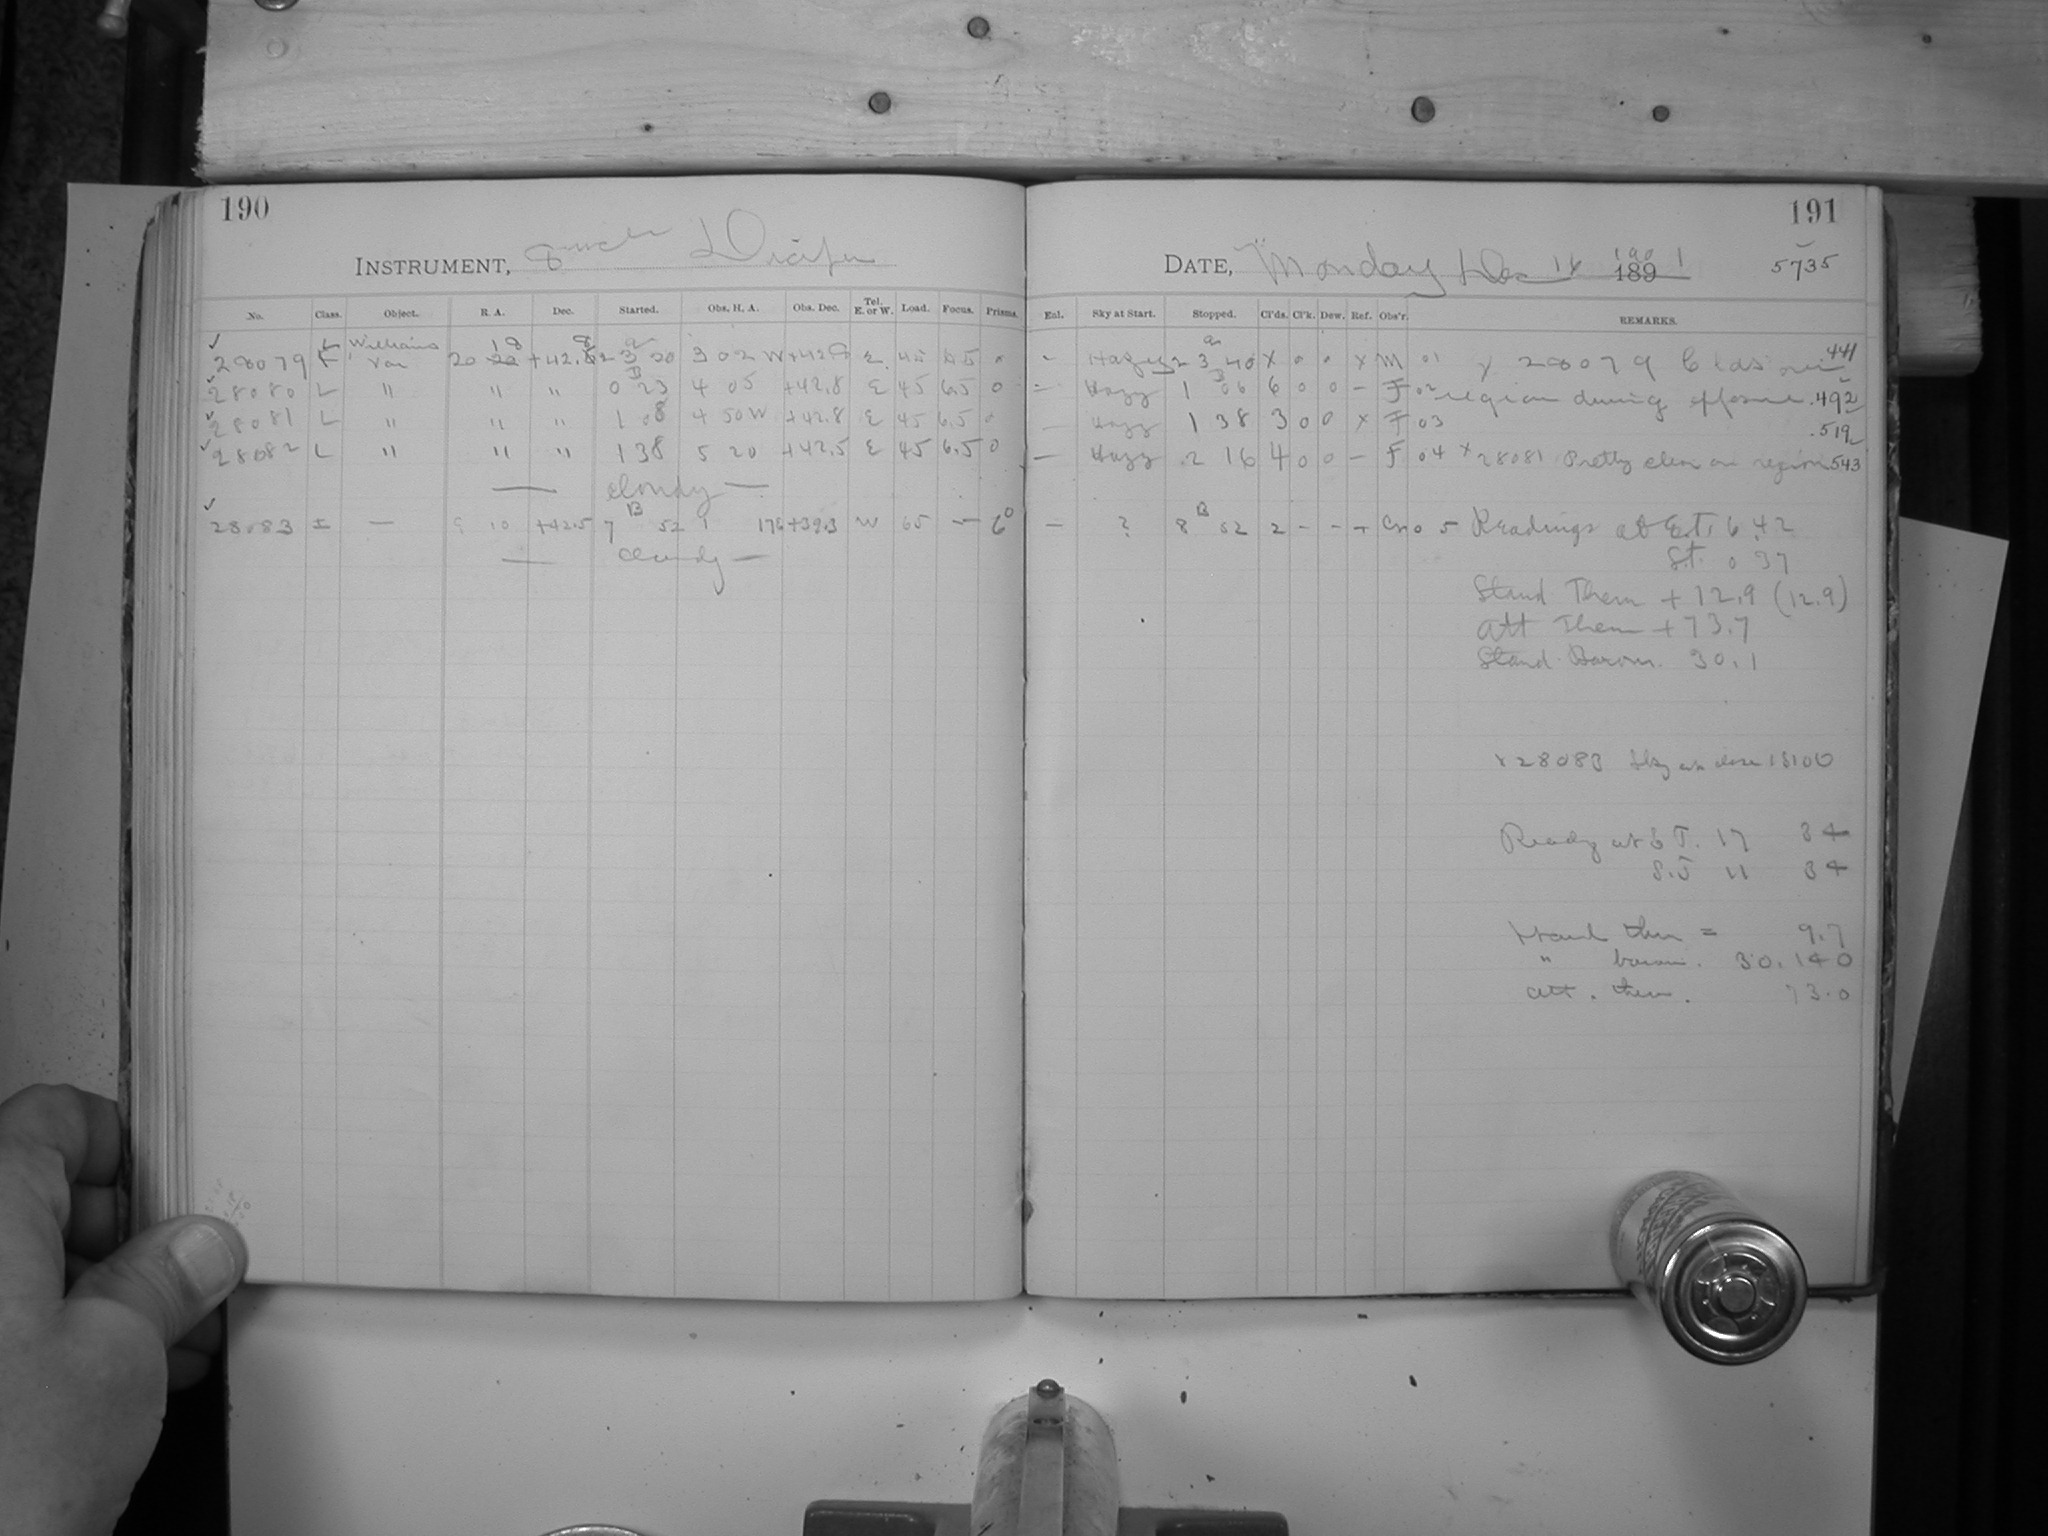 190
INSTRUMENT, 8 inch Draper
No. Class. Object. R. A. Dec. Started. Obs. H. A. Obs. Dec. Tel. E. or W. Load. Focus. Prisms.
28079 L Williams Var 20 18 +42.8 23 20 3 02 W +42.8 E 45 6.5 0
28080 L " " " 0 23 4 05 +42.8 E 45 6.5 0
28081 L " " " 1 08 4 50 W +42.8 E 45 6.5 0
28082 L " " " 1 38 5 20 +42.5 E 45 6.5 0
— cloudy —
28083 I — 10 +42.5 7 52 1 +39.3 W 65 — 6°
— cloudy —
191
DATE, Monday Dec 16 1901
189
5735
Enl. Sky at Start. Stopped. Cl'ds. Cl'k. Dew. Ref. Obs'r. REMARKS.
- Hazy 23 40 x 0 0 x M 01 x 28079 Clds over .441
- Hazy 1 06 6 0 0 - F 02 region during exposure .492
- Hazy 1 38 3 0 0 x F 03
.519
- Hazy 2 16 4 0 0 - F 04 x 28081 Pretty clear in region .543
— ? 8 52 2 - - + 05 Readings at E.T. 6.42
S.T. 0 37
Stand Therm + 12.9 (12.9)
Att Therm + 73.7
Stand. Barom. 30.1
x 28083 Sky at close
Ready at E T. 17 34
S.T 11 34
Stand ther = 9.7
" barom. 30.140
att. therm. 73.0